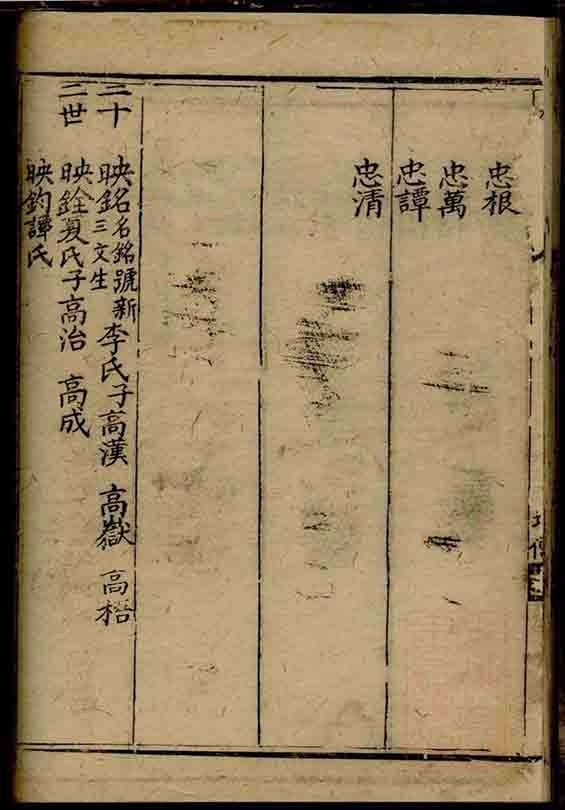 忠根
忠萬
忠譚
忠清
三十二世
映銘名銘號新三文生李氏子高漢 高嶽 高梧
映銓夏氏子高治 高成
映鈞譚氏